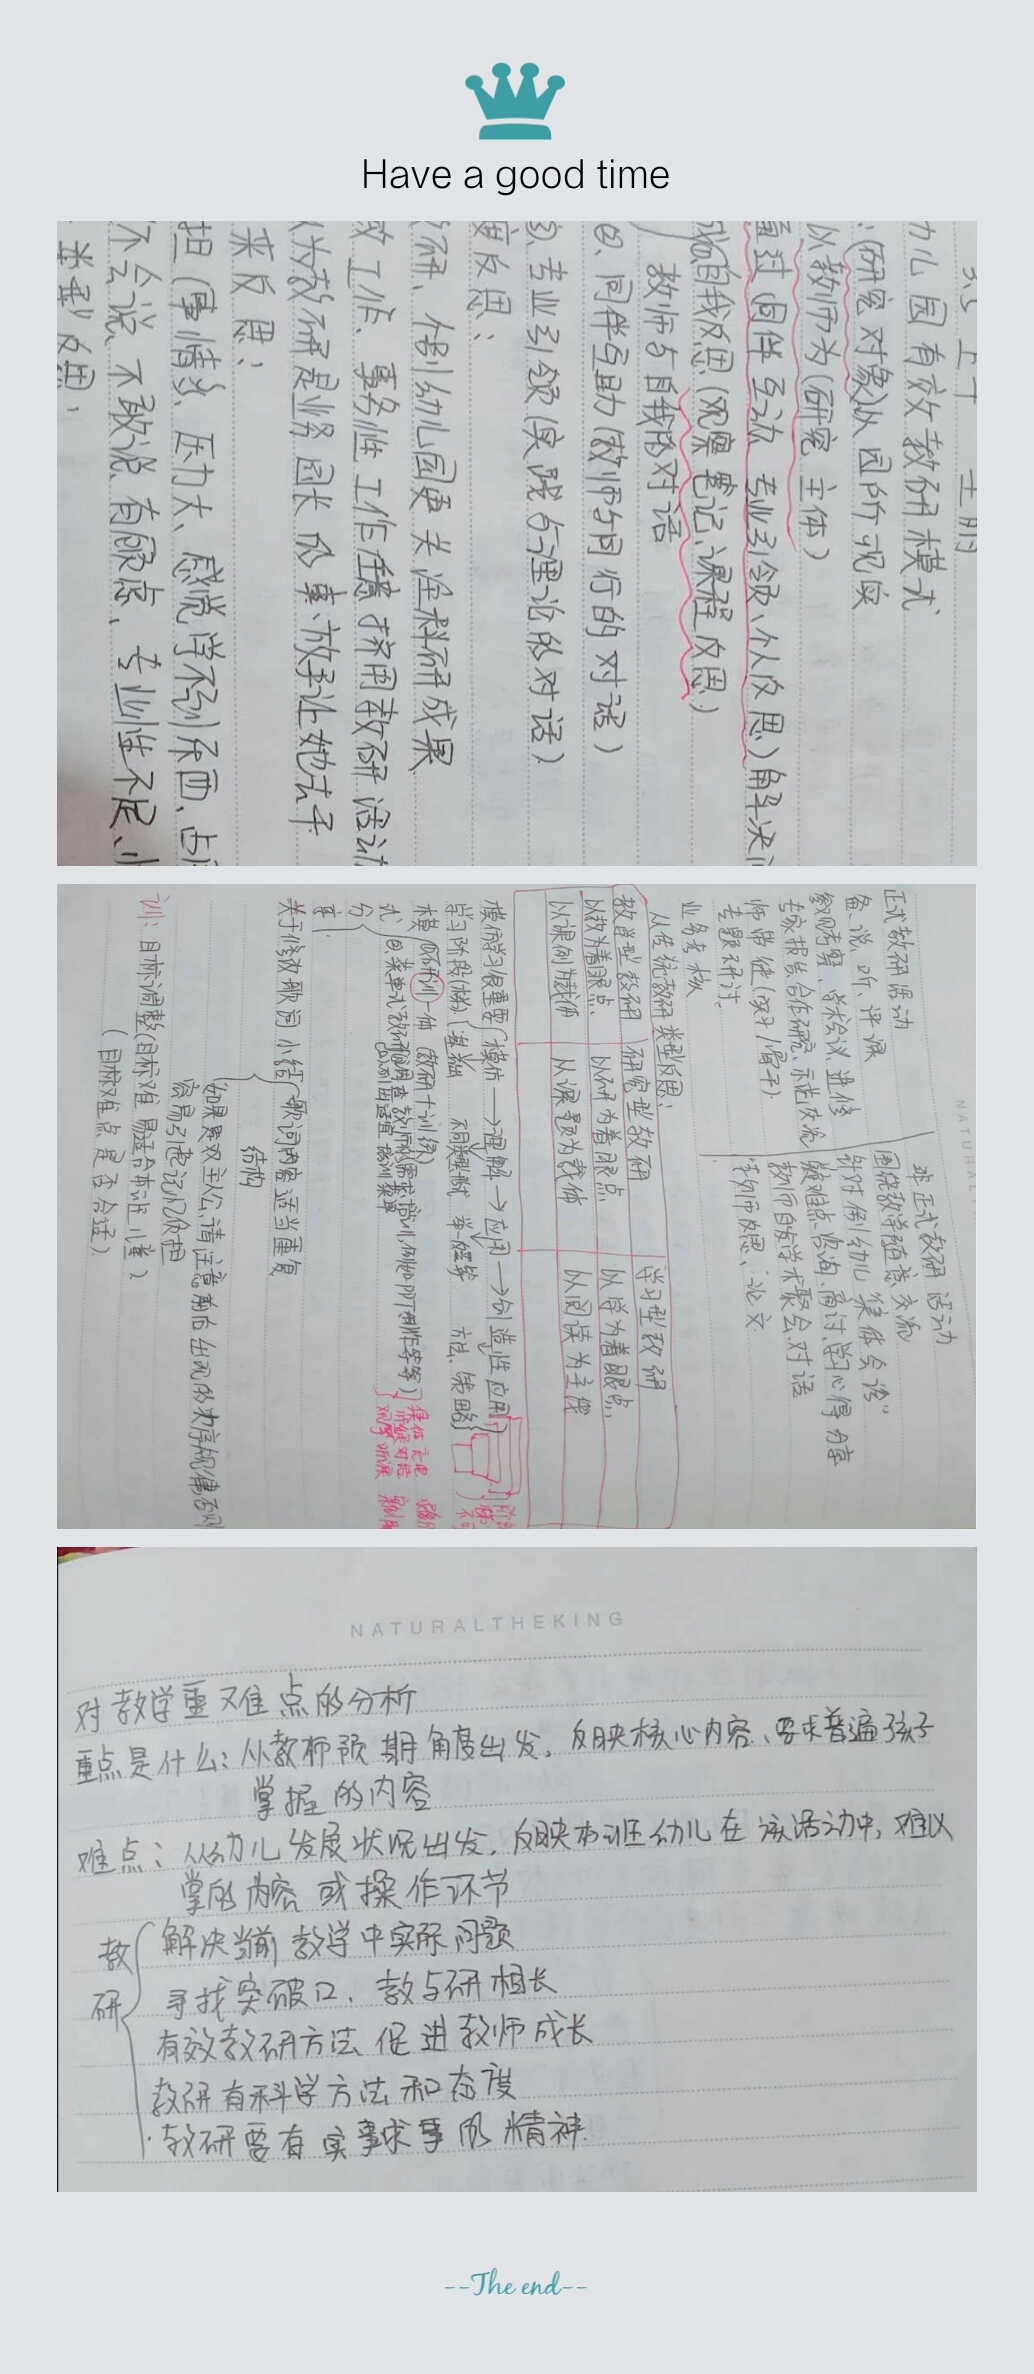 Have a good time
幼儿园有效教研模式
(研究对象)从园所现实
以教师为(研究主体)
通过(同伴互动 专业引领、个人反思)解决
自我反思(观察笔记、课程反思)
教师与自我的对话
同伴互助(教师与同行的对话)
专业引领(实践与理论的对话)
度反思:
研、个别幼儿园更关注科研成果
工作、事务性工作任意挤用教研活动
认为教研是业务园长的事、放手让她去干
来反思:
担(事情多、压力大、感觉学不到东西、占
不会说、不敢说、有顾虑、专业性不足、
反思:
正式教研活动
备、说、听、评课
观摩考察、学术会议、进修
专家报告合作研究、示范交流
师带徒
专题研讨、
业务考核
非正式教研活动
围绕教学随意交流
针对个别幼儿“集体会诊”
疑难点咨询、商讨、学习心得分享
教师自发学术聚会、对话
教师反思、论文
从传统教研类型反思:
教学型教研 研究型教研 学习型教研
以教为着眼点 以研为着眼点 以学为着眼点
以课例为载体 以课题为载体 以阅读为主线
模仿学习很重要(模仿→理解→应用→创造性应用)
学习阶段(梯)
模式
研训一体(教研+训练)
分享
关于修改歌词小结
歌词内容适当重复
结构
如果是双主公,请注意前后出现的次序规律否则
容易引起记忆负担
训:目标调整(目标对难易适合本班儿童)
(目标难点是否合适)
NATURALTHEKING
对教学重难点的分析
重点是什么:从教师预期角度出发,反映核心内容、要求普遍孩子
掌握的内容
难点:从幼儿发展状况出发,反映本班幼儿在该活动中,难以
掌的内容或操作环节
教研
解决当前教学中实际问题
寻找突破口、教与研相长
有效教研方法促进教师成长
教研有科学方法和态度
·教研要有实事求事的精神.
--The end--